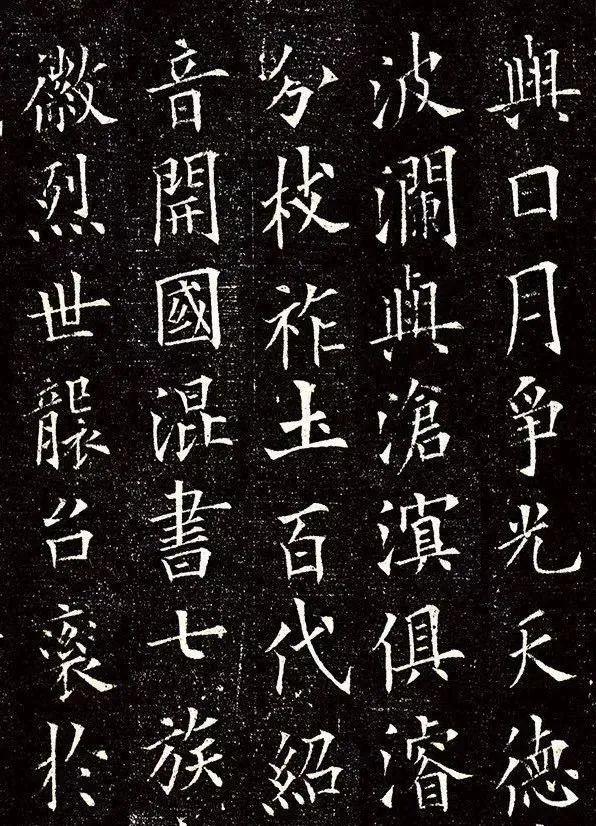 與日月爭光天德
波瀾與滄溟俱濬
分枝祚土百代紹
音開國混書七族
徽烈世襲台袞於